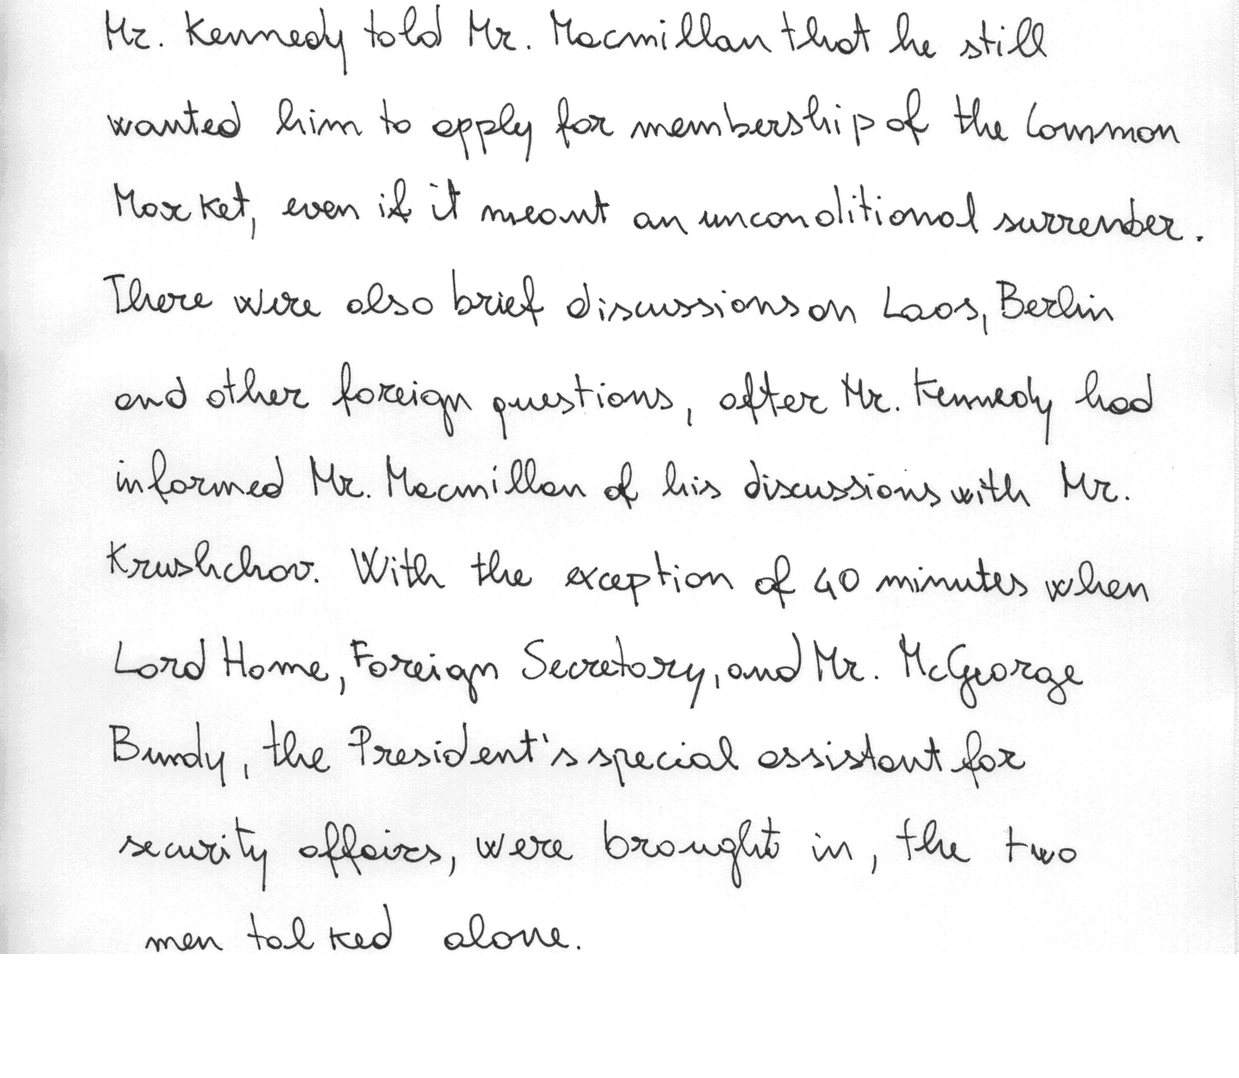 Mr. Kennedy told Mr. Macmillan that he still
wanted him to apply for membership of the Common
Market, even if it meant an unconditional surrender.
There were also brief discussions on Laos, Berlin
and other foreign questions, after Mr. Kennedy had
informed Mr. Macmillan of his discussions with Mr.
Krushchov. With the exception of 40 minutes when
Lord Home, Foreign Secretory, and Mr. McGeorge
Bundy, the President's special assistant for
security affairs, were brought in, the two
men talked alone.